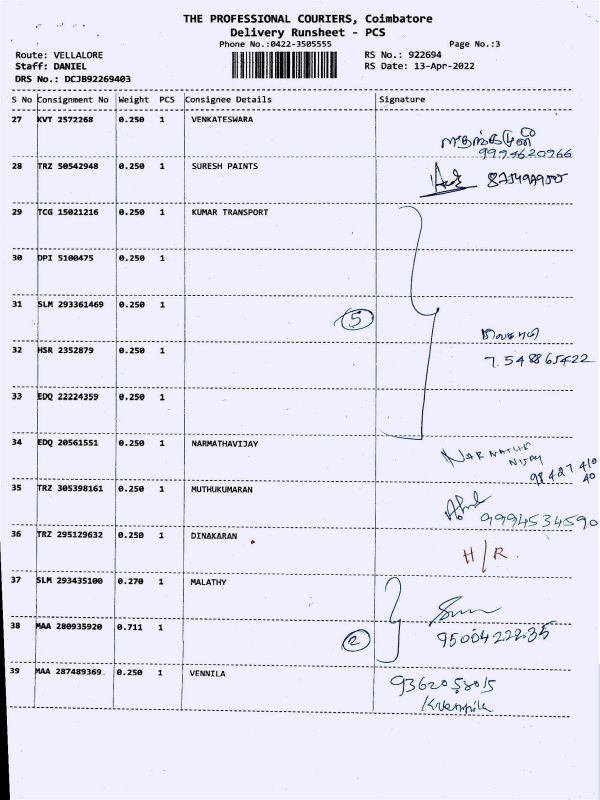 THE PROFESSIONAL COURIERS, Coimbatore
Delivery Runsheet - PCS
Phone No.:0422-3505555
Page No.:3
Route: VELLALORE
RS No.: 922694
Staff: DANIEL
RS Date: 13-Apr-2022
DRS No.: DCJB92269403
S No Consignment No Weight PCS Consignee Details Signature
27 KVT 2572268 0.250 1 VENKATESWARA
9994620966
28 TRZ 50542948 0.250 1 SURESH PAINTS
29 TCG 15021216 0.250 1 KUMAR TRANSPORT
30 DPI 5100475 0.250 1
31 SLM 293361469 0.250 1
5
32 HSR 2352879 0.250 1
7548865422
33 EDQ 22224359 0.250 1
34 EDQ 20561551 0.250 1 NARMATHAVIJAY
98427 410
40
35 TRZ 305398161 0.250 1 MUTHUKUMARAN
9994534590
36 TRZ 295129632 0.250 1 DINAKARAN
H/R
37 SLM 293435100 0.270 1 MALATHY
38 MAA 280935920 0.711 1
2 9500422235
39 MAA 287489369 0.250 1 VENNILA
9362053015